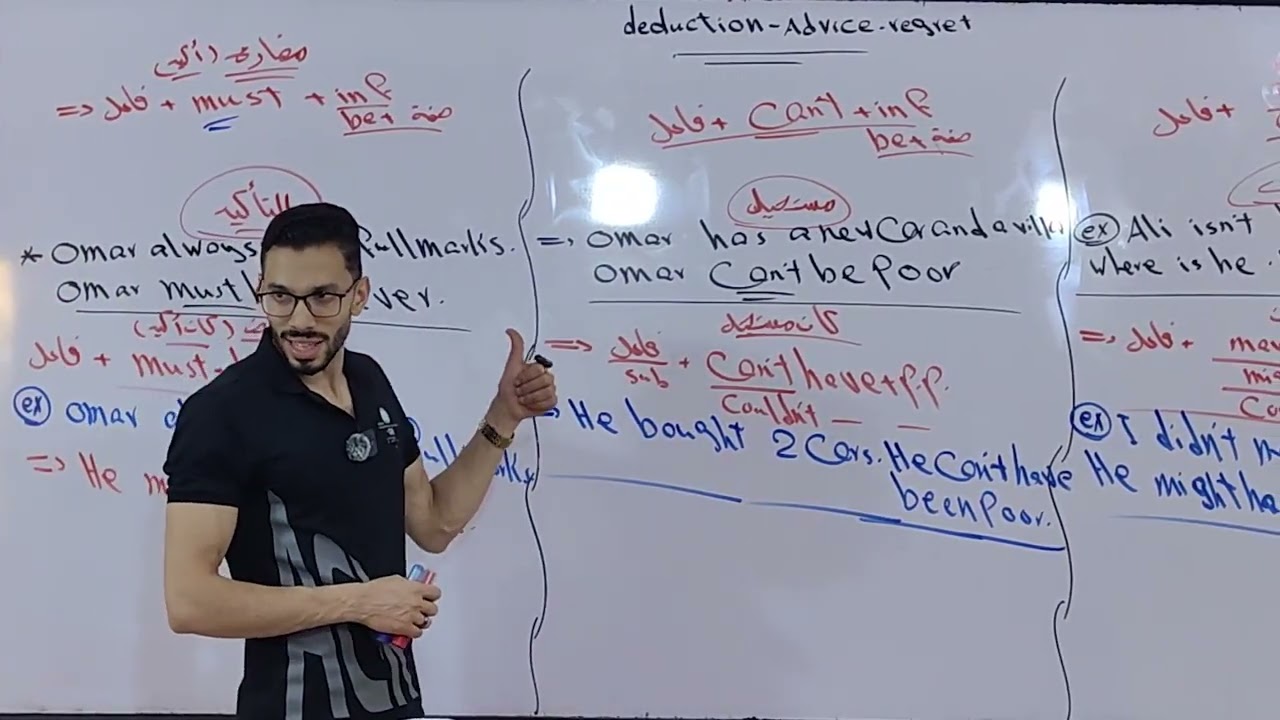 deduction-Advice-regret
مضارع (أكيد)
=> فاعل + must + inf
be + صفة
التأكيد
* Omar always full marks.
Omar must ver.
(كان أكيد)
فاعل + must
ex Omar
=> He m
فاعل + Can't + inf
be + صفة
مستحيل
=> Omar has a new Car and a villa
Omar Can't be Poor
كان مستحيل
=> فاعل + Can't have + P.P.
sub Couldn't
=> He bought 2 Cars. He Can't have
been Poor.
فاعل +
ex Ali isn't
where is he.
=> فاعل +
ex I didn't m
He might ha